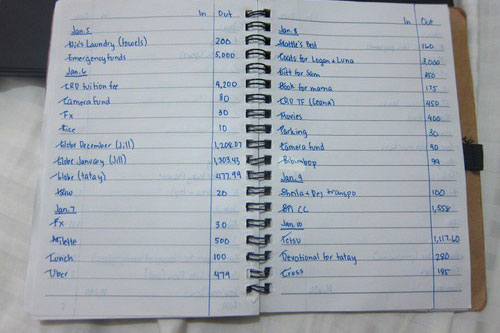 In Out
Jan. 5
Bio's Laundry (towels) 200
Emergency funds 5,000
Jan. 6
CRD tuition fee 4,200
Camera fund 80
Fx 30
Rice 10
Globe December (Jill) 1,208.07
Globe January (Jill) 1,303.43
Globe (tatay) 477.99
20
Jan. 7
Fx 30
Milette 500
Lunch 100
Uber 479
In Out
Jan. 8
Seattle's Best 160
Coats for Logan & Luna 3,000
Gift for Sam 250
Book for mama 175
CRD TF (Leana) 450
Movies 400
Parking 30
Camera fund 90
Bibimbop 99
Jan. 9
Sheila & Des transpo 100
BPI CC 1,558
Jan. 10
Tetsu 1,117.60
Devotional for tatay 280
Cross 185